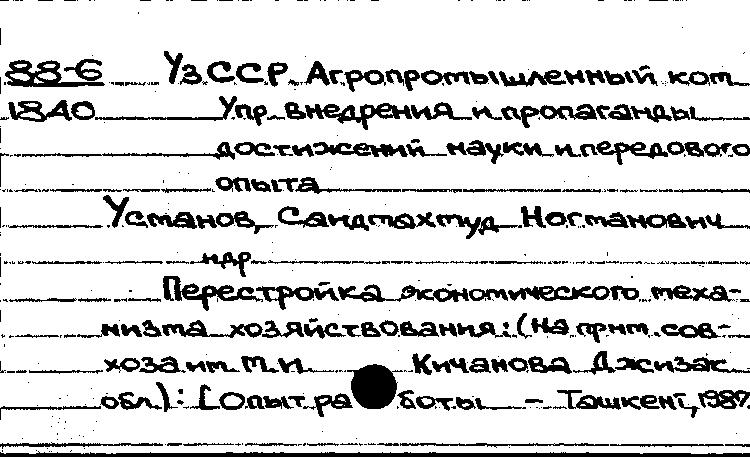 88-6 УзССР. Агропромышленный ком
1840 Упр. внедрения и пропаганды
достижений науки и передового
опыта
Усманов, Саидмахмуд Ногманович
Перестройка экономического меха-
низма хозяйствования: (На прим. сов-
хоза им. М.И. Кичанова Джизак.
обл.): [Опыт работы — Ташкент, 1987